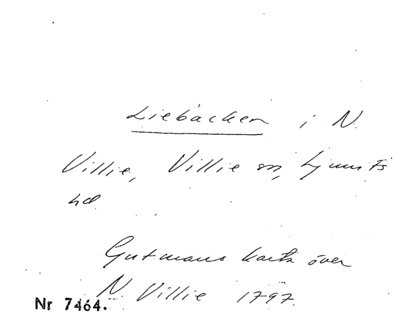 Liebacken i N.
Villie, Villie sn, Ljunits
hd
Gutmans karta över
N Villie 1797.
Nr 7464.